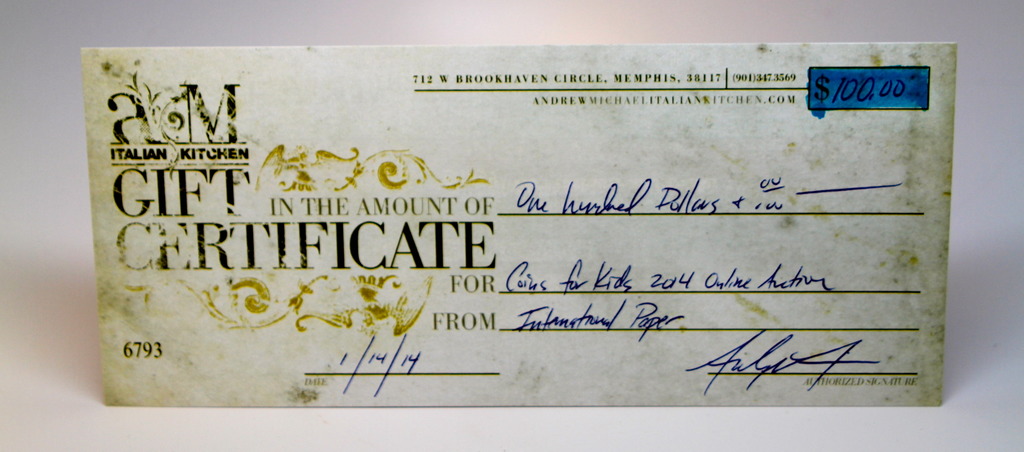 712 W BROOKHAVEN CIRCLE, MEMPHIS, 38117 | (901)347.3569
ANDREWMICHAELITALIANKITCHEN.COM
$100.00
a M
ITALIAN KITCHEN
GIFT
CERTIFICATE
IN THE AMOUNT OF One hundred Dollars + 00/100
FOR Coins for Kids 2014 Online Auction
FROM International Paper
6793
1/14/14
DATE
AUTHORIZED SIGNATURE